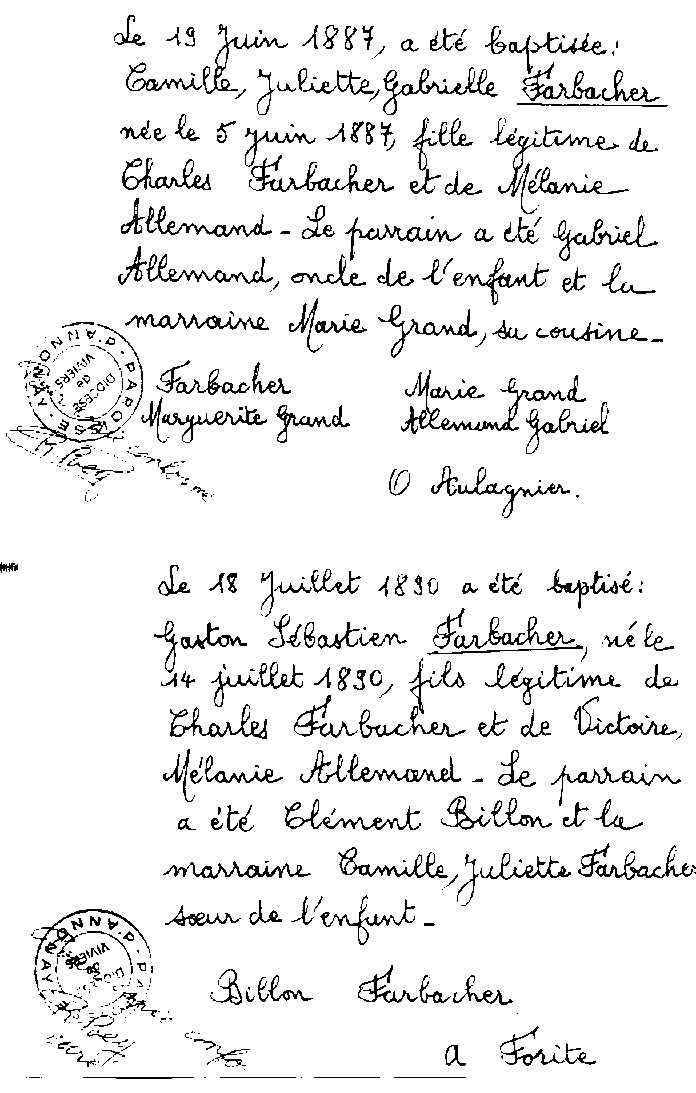 Le 19 Juin 1887, a été baptisée:
Camille, Juliette, Gabrielle Farbacher
née le 5 juin 1887, fille légitime de
Charles Farbacher et de Mélanie
Allemand - Le parrain a été Gabriel
Allemand, oncle de l'enfant et la
marraine Marie Grand, sa cousine -
PAROISSE D'ANNONAY
DIOCESE de VIVIERS
Farbacher Marie Grand
Marguerite Grand Allemand Gabriel
O Aulagnier.
Le 18 Juillet 1890 a été baptisé:
Gaston Sébastien Farbacher, né le
14 juillet 1890, fils légitime de
Charles Farbacher et de Victoire,
Mélanie Allemand - Le parrain
a été Clément Billon et la
marraine Camille, Juliette Farbache
sœur de l'enfant -
D'ANNONAY
VIVIERS
Billon Farbacher
A Forite